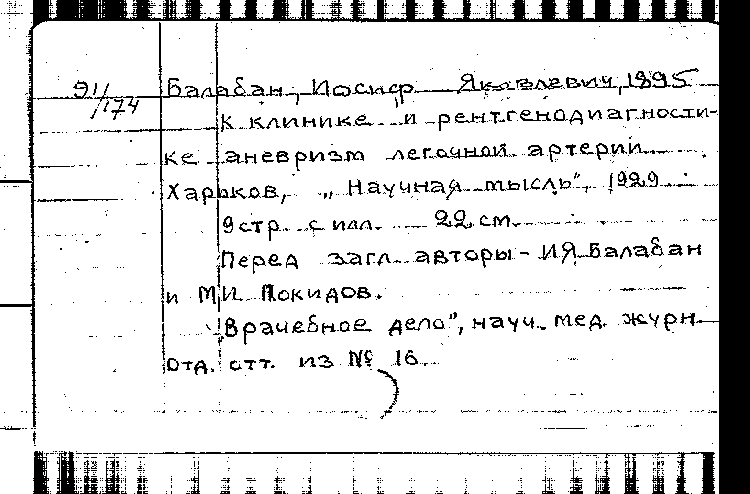 91/174
Балабан, Иосиф Яковлевич, 1895
К клинике и рентгенодиагности-
ке аневризм легочной артерии
Харьков, „Научная мысль", 1929
9 стр. с илл. 22 см.
Перед загл. авторы - И.Я. Балабан
и М.И. Покидов.
„Врачебное дело", науч. мед. журн.
отд. отт. из № 16